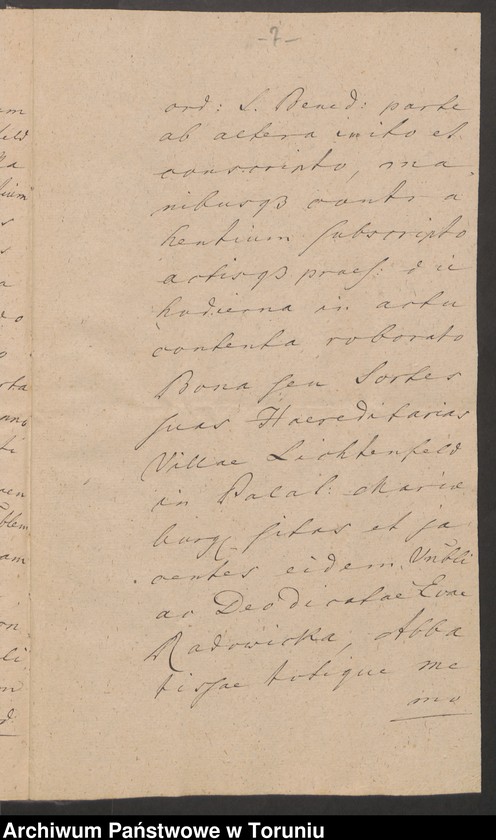 -7-
ord: S. Bened: parte
ab altera inito et
conscripto, ma
nibusqꝫ contra
hentium subscripto
actisqꝫ praes: die
hodierna in actu
contenta roborato
Bona seu Sortes
suas Haereditarias
Villae Lichtenfeld
in Palat: Marie
burg. sitas et ja
centes eidem Vnbli
ac Deodicatae Evae
Radowicka, Abba
tissae totique me
mo
um
feld
lla
s
s
a
vo
rta
ti
am
on
li
Archiwum Państwowe w Toruniu